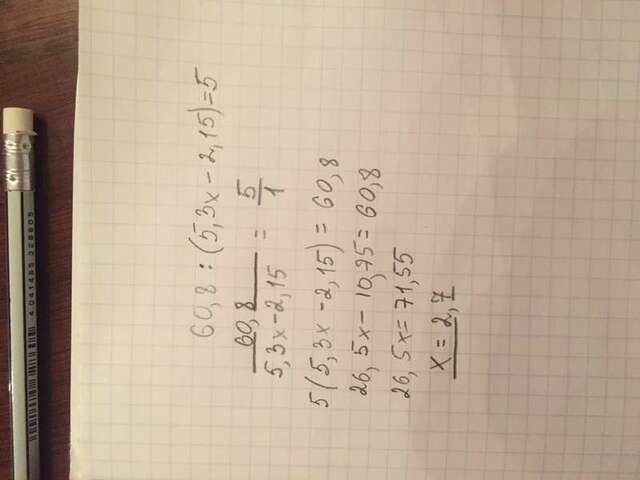 60,8 : (5,3x - 2,15) = 5
60,8 / 5,3x - 2,15 = 5 / 1
5(5,3x - 2,15) = 60,8
26,5x - 10,75 = 60,8
26,5x = 71,55
x = 2,7
4 041485 228605